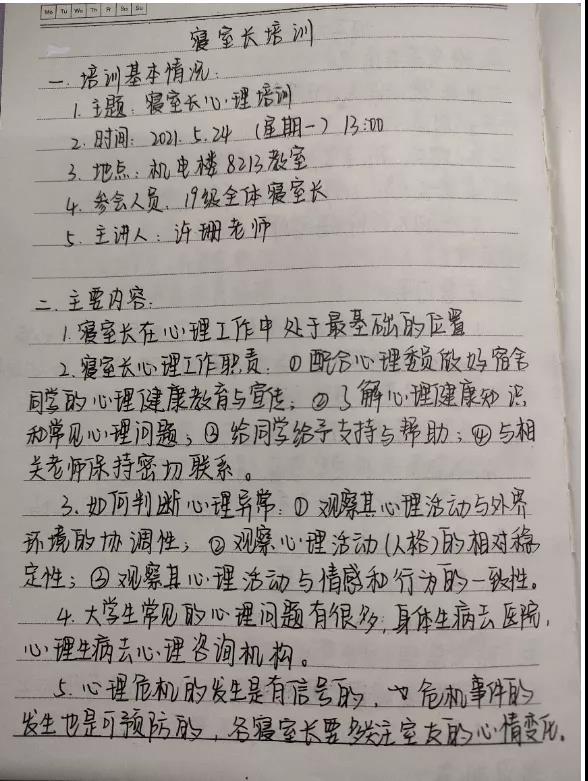 Mo Tu We Th Fr Sa Su
寝室长培训
一. 培训基本情况:
1. 主题: 寝室长心理培训
2. 时间: 2021. 5.24 (星期一) 13:00
3. 地点: 机电楼8213教室
4. 参会人员: 19级全体寝室长
5. 主讲人: 许珊老师
二. 主要内容:
1. 寝室长在心理工作中处于最基础的位置
2. 寝室长心理工作职责: ① 配合心理委员做好宿舍
同学的心理健康教育与宣传; ② 了解心理健康知识
和常见心理问题; ③ 给同学给予支持与帮助; ④ 与相
关老师保持密切联系。
3. 如何判断心理异常: ① 观察其心理活动与外界
环境的协调性; ② 观察心理活动(人格)的相对稳
定性; ③ 观察其心理活动与情感和行为的一致性。
4. 大学生常见的心理问题有很多, 身体生病去医院,
心理生病去心理咨询机构。
5. 心理危机的发生是有信号的, 危机事件的
发生也是可预防的, 各寝室长要多关注室友的心情变化。